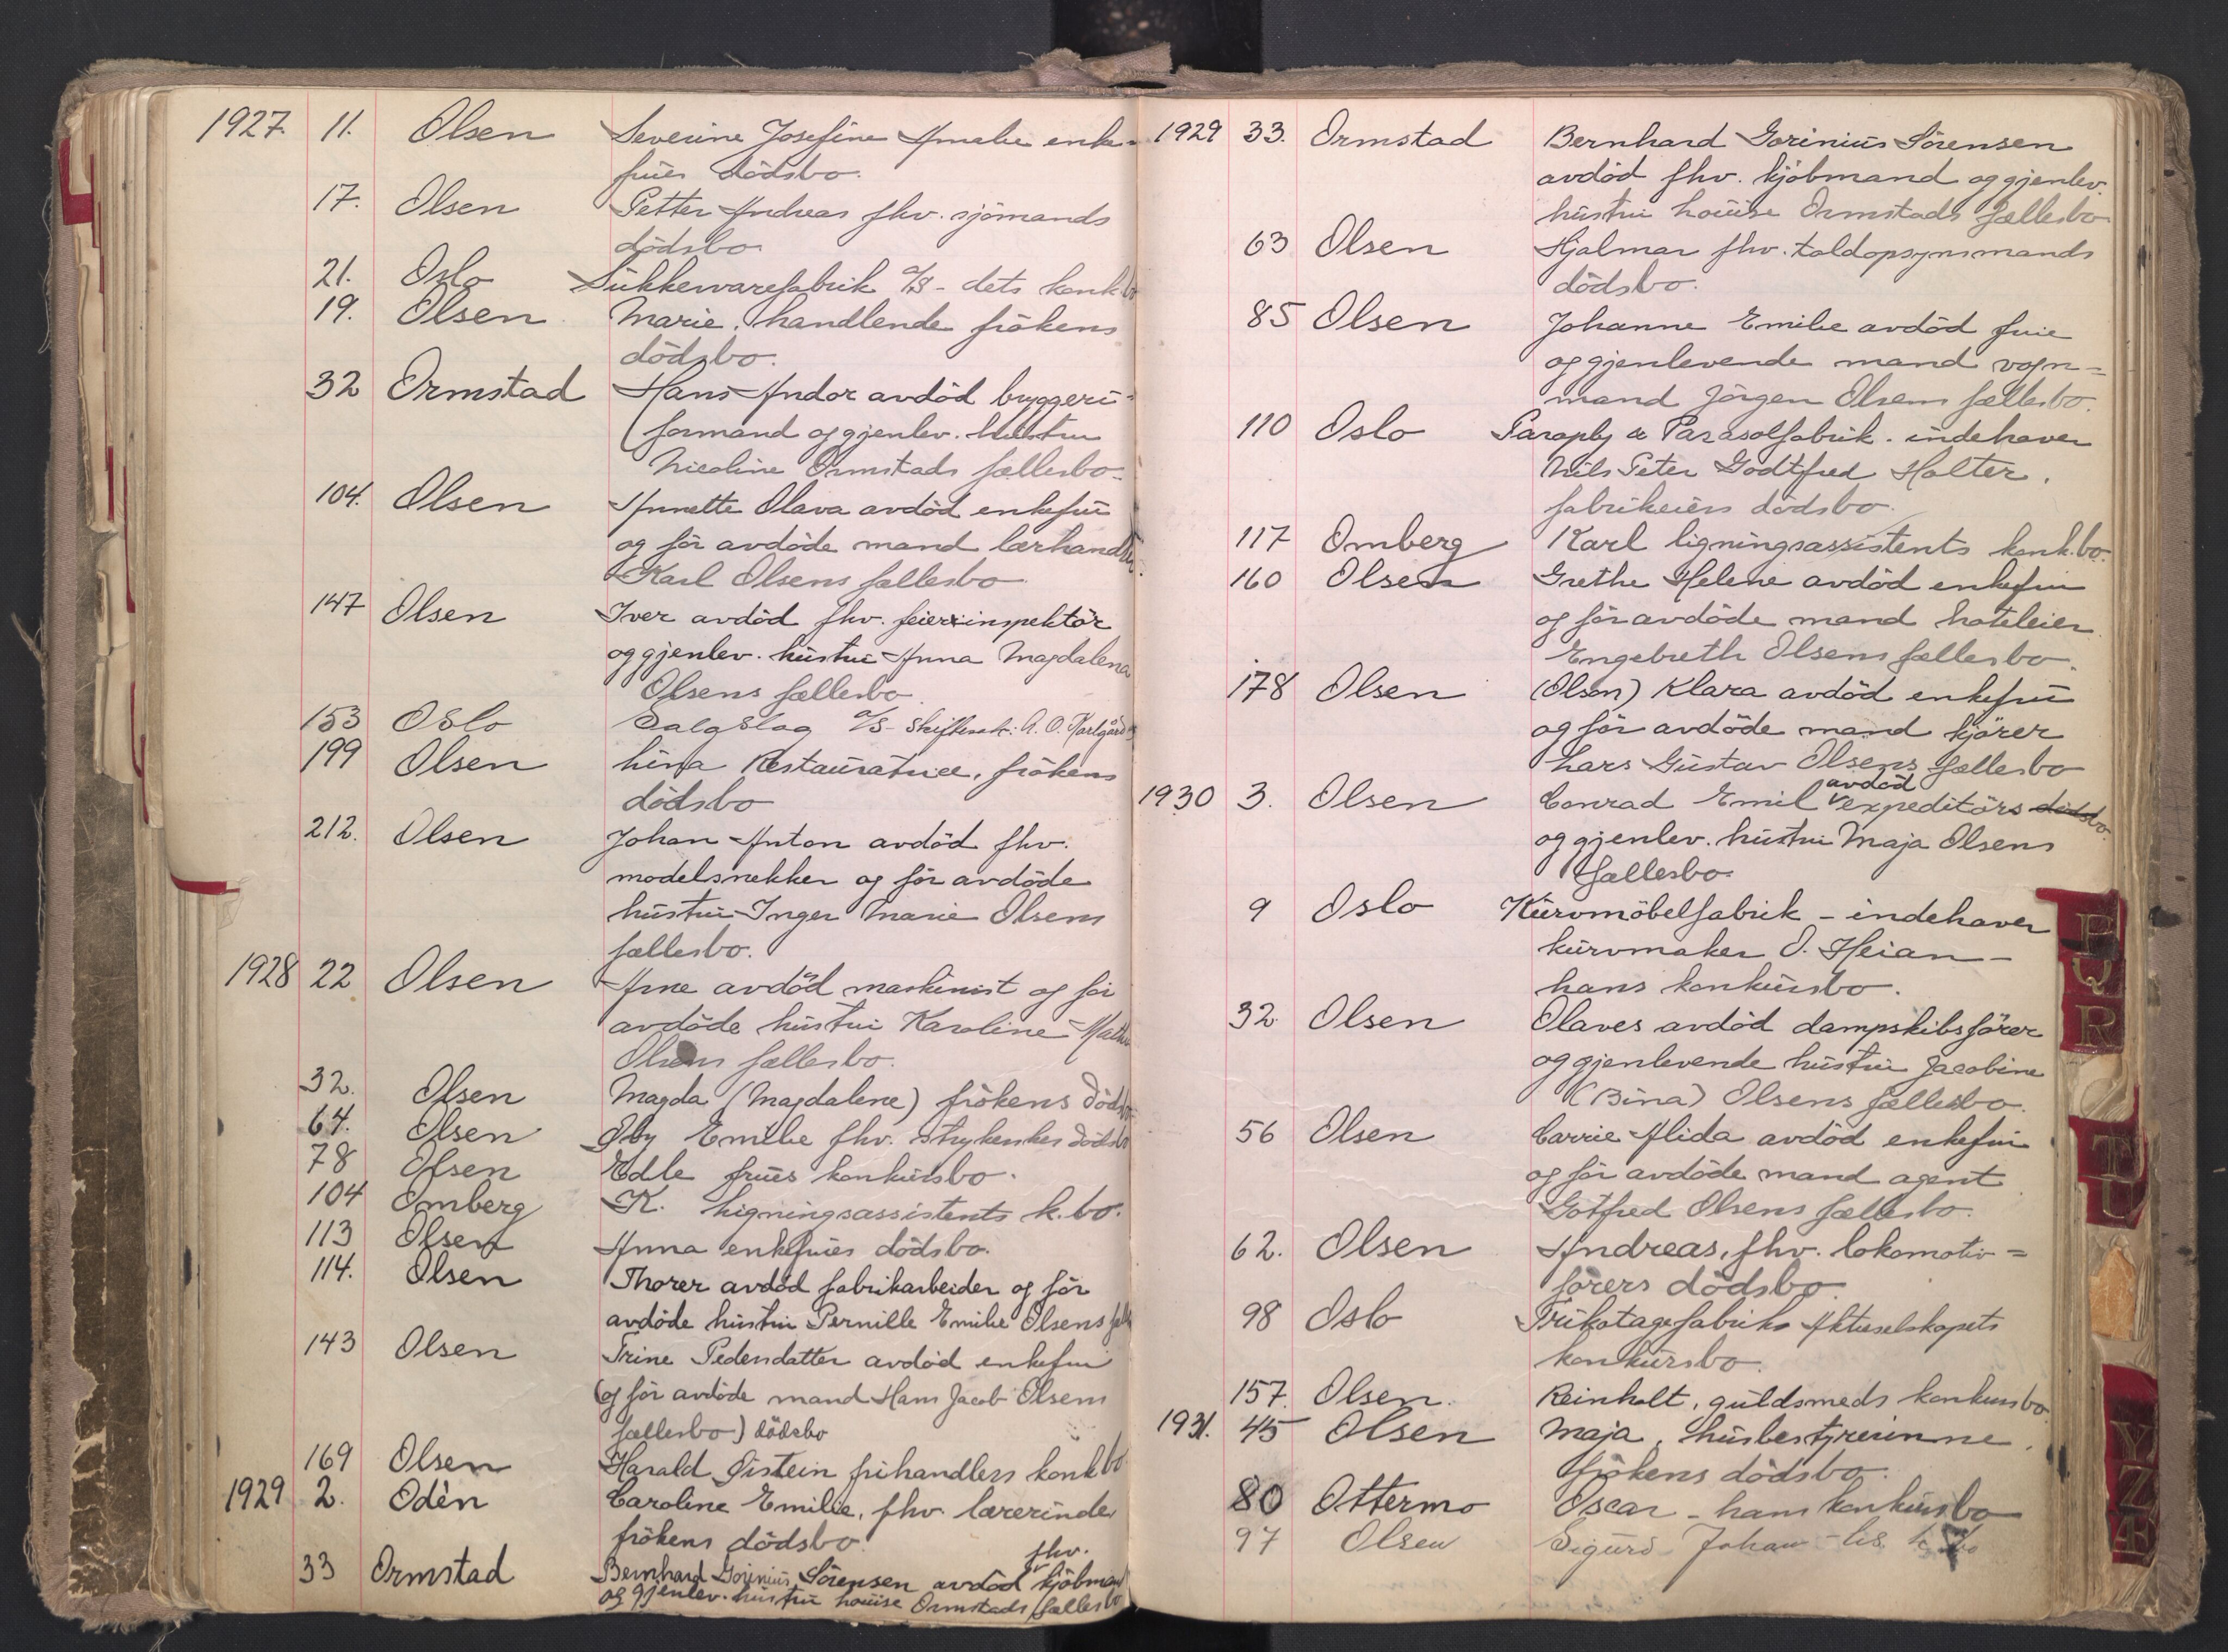 1927. 11. Olsen Severine Josefine Amalie enke-
frues dödsbo.
17. Olsen Petter Andreas fhv. sjömands
dödsbo
21. Oslo Sukkervarefabrik A/S - dets konkbo
19. Olsen Marie, handlende frökens
dödsbo.
32 Ormstad Hans Andor avdöd bryggeri-
formand og gjenlev. hustru
Nicoline Ormstads fællesbo.
104. Olsen Annette Olava avdöd enkefru
og för avdöde mand lærhandler
Karl Olsens fællesbo.
147 Olsen Iver avdöd fhv. feierinspektör
og gjenlev. hustru Anna Magdalena
Olsens fællesbo
153 Oslo Salgslag A/S - A. O. Karlgård
199 Olsen Lina Restauratrice, frökens
dödsbo
212. Olsen Johan Anton avdöd fhv.
modelsnekker og för avdöde
hustru Inger Marie Olsens
fællesbo.
1928 22 Olsen Arne avdöd maskinist og för
avdöde hustru Karoline
Olsens fællesbo.
32. Olsen Magda (Magdalene) frökens döds
64. Olsen Emilie fhv. strykerskes dödsbo
78 Olsen Edle frues konkursbo.
104 Omberg K. Ligningsassistents k.bo.
113 Olsen Anna enkefrues dödsbo.
114. Olsen Thorer avdöd fabrikarbeider og för
avdöde hustru Pernille Emilie Olsens fælle
143 Olsen Trine Pedersdatter avdöd enkefru
(og för avdöde mand Hans Jacob Olsens
fællesbo) dödsbo
169 Olsen Harald Øistein frihandlers konkbo
1929 2. Odèn Caroline Emilie, fhv. lærerinde,
frökens dödsbo.
33 Ormstad Bernhard Gorinius Sörensen avdöd fhv. kjöbmand
og gjenlev. hustru Louise Ormstads fællesbo
1929 33. Ormstad Bernhard Gorinius Sörensen
avdöd fhv. kjöbmand og gjenlev.
hustru Louise Ormstads fællesbo
63 Olsen Hjalmar fhv. toldopsynsmands
dödsbo.
85 Olsen Johanne Emilie avdöd frue
og gjenlevende mand vogn=
mand Jörgen Olsens fællesbo.
110 Oslo Paraply & Parasolfabrik. indehaver
Nils Peter Godtfred Holter,
fabrikeiers dödsbo.
117 Omberg Karl ligningsassistents konk.bo.
160 Olsen Grethe Helene avdöd enkefru
og för avdöde mand hoteleier
Engebreth Olsens fællesbo.
178 Olsen (Olson) Klara avdöd enkefru
og för avdöde mand kjörer
Lars Gustav Olsens fællesbo
1930 3. Olsen Conrad Emil avdöd expeditörs dödsbo
og gjenlev. hustru Maja Olsens
fællesbo.
9 Oslo Kurvmöbelfabrik - indehaver
kurvmaker O. Heian -
hans konkursbo.
32 Olsen Olaves avdöd dampskibsförer
og gjenlevende hustru Jacobine
(Bina) Olsens fællesbo.
56 Olsen Carrie Alida avdöd enkefru
og för avdöde mand agent
Gotfred Olsens fællesbo.
62. Olsen Andreas, fhv. lokomotiv=
förers dödsbo.
98 Oslo Trikotagefabriks Aktieselskapets
konkursbo.
157. Olsen. Reinholt, guldsmeds konkursbo
1931. 45 Olsen Maja, husbestyrerinne,
frökens dödsbo.
80 Ottermo Oscar - hans konkursbo
97 Olsen Sigurd Johan
P
Q
R
T
U
Y
Z
Æ